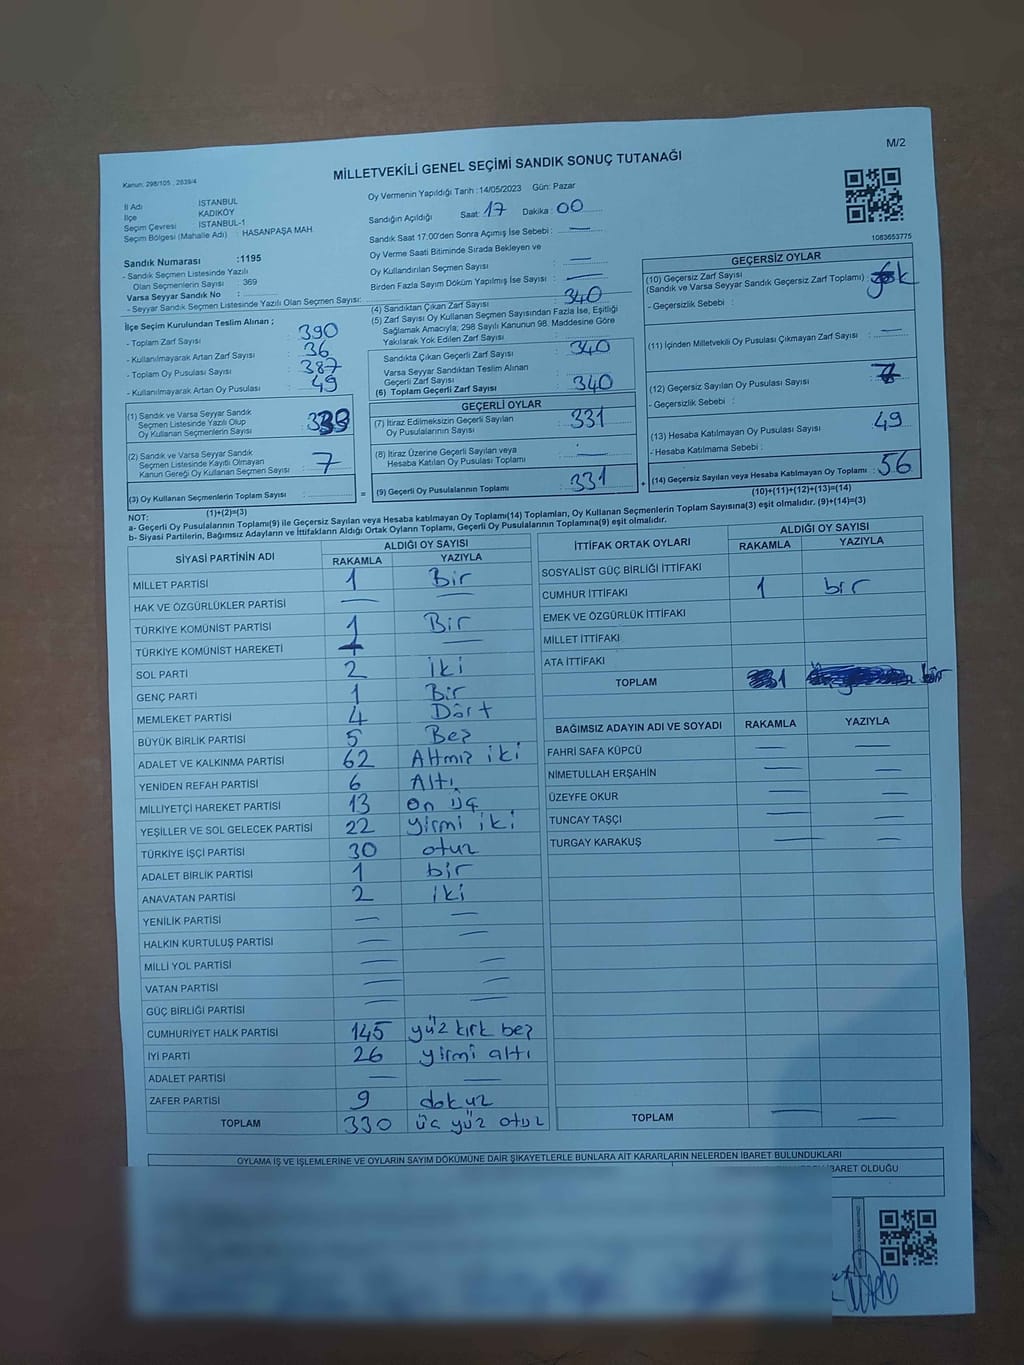 M/2
MİLLETVEKİLİ GENEL SEÇİMİ SANDIK SONUÇ TUTANAĞI
Kanun: 298/105 , 2839/4
İl Adı İSTANBUL
İlçe KADIKÖY
Seçim Çevresi İSTANBUL-1
Seçim Bölgesi (Mahalle Adı) : HASANPAŞA MAH.
Oy Vermenin Yapıldığı Tarih : 14/05/2023 Gün: Pazar
Sandığın Açıldığı Saat: 17 Dakika : 00
Sandık Saat 17:00'den Sonra Açımış İse Sebebi : —
Oy Verme Saati Bitiminde Sırada Bekleyen ve
Oy Kullandırılan Seçmen Sayısı —
Birden Fazla Sayım Döküm Yapılmış İse Sayısı : —
1083653775
Sandık Numarası :1195
- Sandık Seçmen Listesinde Yazılı
Olan Seçmenlerin Sayısı 369
Varsa Seyyar Sandık No :
- Seyyar Sandık Seçmen Listesinde Yazılı Olan Seçmen Sayısı:
İlçe Seçim Kurulundan Teslim Alınan ;
- Toplam Zarf Sayısı : 390
- Kullanılmayarak Artan Zarf Sayısı : 36
- Toplam Oy Pusulası Sayısı : 387
- Kullanılmayarak Artan Oy Pusulası : 49
(1) Sandık ve Varsa Seyyar Sandık
Seçmen Listesinde Yazılı Olup
Oy Kullanan Seçmenlerin Sayısı :
(2) Sandık ve Varsa Seyyar Sandık
Seçmen Listesinde Kayıtlı Olmayan
Kanun Gereği Oy Kullanan Seçmen Sayısı : 7
(3) Oy Kullanan Seçmenlerin Toplam Sayısı :
(1)+(2)=(3)
(4) Sandıktan Çıkan Zarf Sayısı : 340
(5) Zarf Sayısı Oy Kullanan Seçmen Sayısından Fazla İse, Eşitliği
Sağlamak Amacıyla; 298 Sayılı Kanunun 98. Maddesine Göre
Yakılarak Yok Edilen Zarf Sayısı :
Sandıkta Çıkan Geçerli Zarf Sayısı : 340
Varsa Seyyar Sandıktan Teslim Alınan
Geçerli Zarf Sayısı :
(6) Toplam Geçerli Zarf Sayısı : 340
GEÇERLİ OYLAR
(7) İtiraz Edilmeksizin Geçerli Sayılan
Oy Pusulalarının Sayısı : 331
(8) İtiraz Üzerine Geçerli Sayılan veya
Hesaba Katılan Oy Pusulası Toplamı : —
= (9) Geçerli Oy Pusulalarının Toplamı : 331
GEÇERSİZ OYLAR
(10) Geçersiz Zarf Sayısı
(Sandık ve Varsa Seyyar Sandık Geçersiz Zarf Toplamı) :
- Geçersizlik Sebebi :
(11) İçinden Milletvekili Oy Pusulası Çıkmayan Zarf Sayısı : —
(12) Geçersiz Sayılan Oy Pusulası Sayısı : 7
- Geçersizlik Sebebi :
(13) Hesaba Katılmayan Oy Pusulası Sayısı : 49
- Hesaba Katılmama Sebebi :
+ (14) Geçersiz Sayılan veya Hesaba Katılmayan Oy Toplamı : 56
(10)+(11)+(12)+(13)=(14)
NOT:
a- Geçerli Oy Pusulalarının Toplamı(9) ile Geçersiz Sayılan veya Hesaba katılmayan Oy Toplamı(14) Toplamları, Oy Kullanan Seçmenlerin Toplam Sayısına(3) eşit olmalıdır. (9)+(14)=(3)
b- Siyasi Partilerin, Bağımsız Adayların ve İttifakların Aldığı Ortak Oyların Toplamı, Geçerli Oy Pusulalarının Toplamına(9) eşit olmalıdır.
SİYASİ PARTİNİN ADI ALDIĞI OY SAYISI
RAKAMLA YAZIYLA
MİLLET PARTİSİ 1 Bir
HAK VE ÖZGÜRLÜKLER PARTİSİ — —
TÜRKİYE KOMÜNİST PARTİSİ 1 Bir
TÜRKİYE KOMÜNİST HAREKETİ —
SOL PARTİ 2 iki
GENÇ PARTİ 1 Bir
MEMLEKET PARTİSİ 4 Dört
BÜYÜK BİRLİK PARTİSİ 5 Beş
ADALET VE KALKINMA PARTİSİ 62 Altmış iki
YENİDEN REFAH PARTİSİ 6 Altı
MİLLİYETÇİ HAREKET PARTİSİ 13 on üç
YEŞİLLER VE SOL GELECEK PARTİSİ 22 yirmi iki
TÜRKİYE İŞÇİ PARTİSİ 30 otuz
ADALET BİRLİK PARTİSİ 1 bir
ANAVATAN PARTİSİ 2 iki
YENİLİK PARTİSİ — —
HALKIN KURTULUŞ PARTİSİ — —
MİLLİ YOL PARTİSİ — —
VATAN PARTİSİ — —
GÜÇ BİRLİĞİ PARTİSİ — —
CUMHURİYET HALK PARTİSİ 145 yüz kırk beş
İYİ PARTİ 26 yirmi altı
ADALET PARTİSİ — —
ZAFER PARTİSİ 9 dokuz
TOPLAM 330 üç yüz otuz
İTTİFAK ORTAK OYLARI ALDIĞI OY SAYISI
RAKAMLA YAZIYLA
SOSYALİST GÜÇ BİRLİĞİ İTTİFAKI
CUMHUR İTTİFAKI 1 bir
EMEK VE ÖZGÜRLÜK İTTİFAKI
MİLLET İTTİFAKI
ATA İTTİFAKI
TOPLAM 1 bir
BAĞIMSIZ ADAYIN ADI VE SOYADI RAKAMLA YAZIYLA
FAHRİ SAFA KÜPCÜ — —
NİMETULLAH ERŞAHİN — —
ÜZEYFE OKUR — —
TUNCAY TAŞÇI — —
TURGAY KARAKUŞ — —
TOPLAM — —
OYLAMA İŞ VE İŞLEMLERİNE VE OYLARIN SAYIM DÖKÜMÜNE DAİR ŞİKAYETLERLE BUNLARA AİT KARARLARIN NELERDEN İBARET BULUNDUKLARI
İBARET OLDUĞU